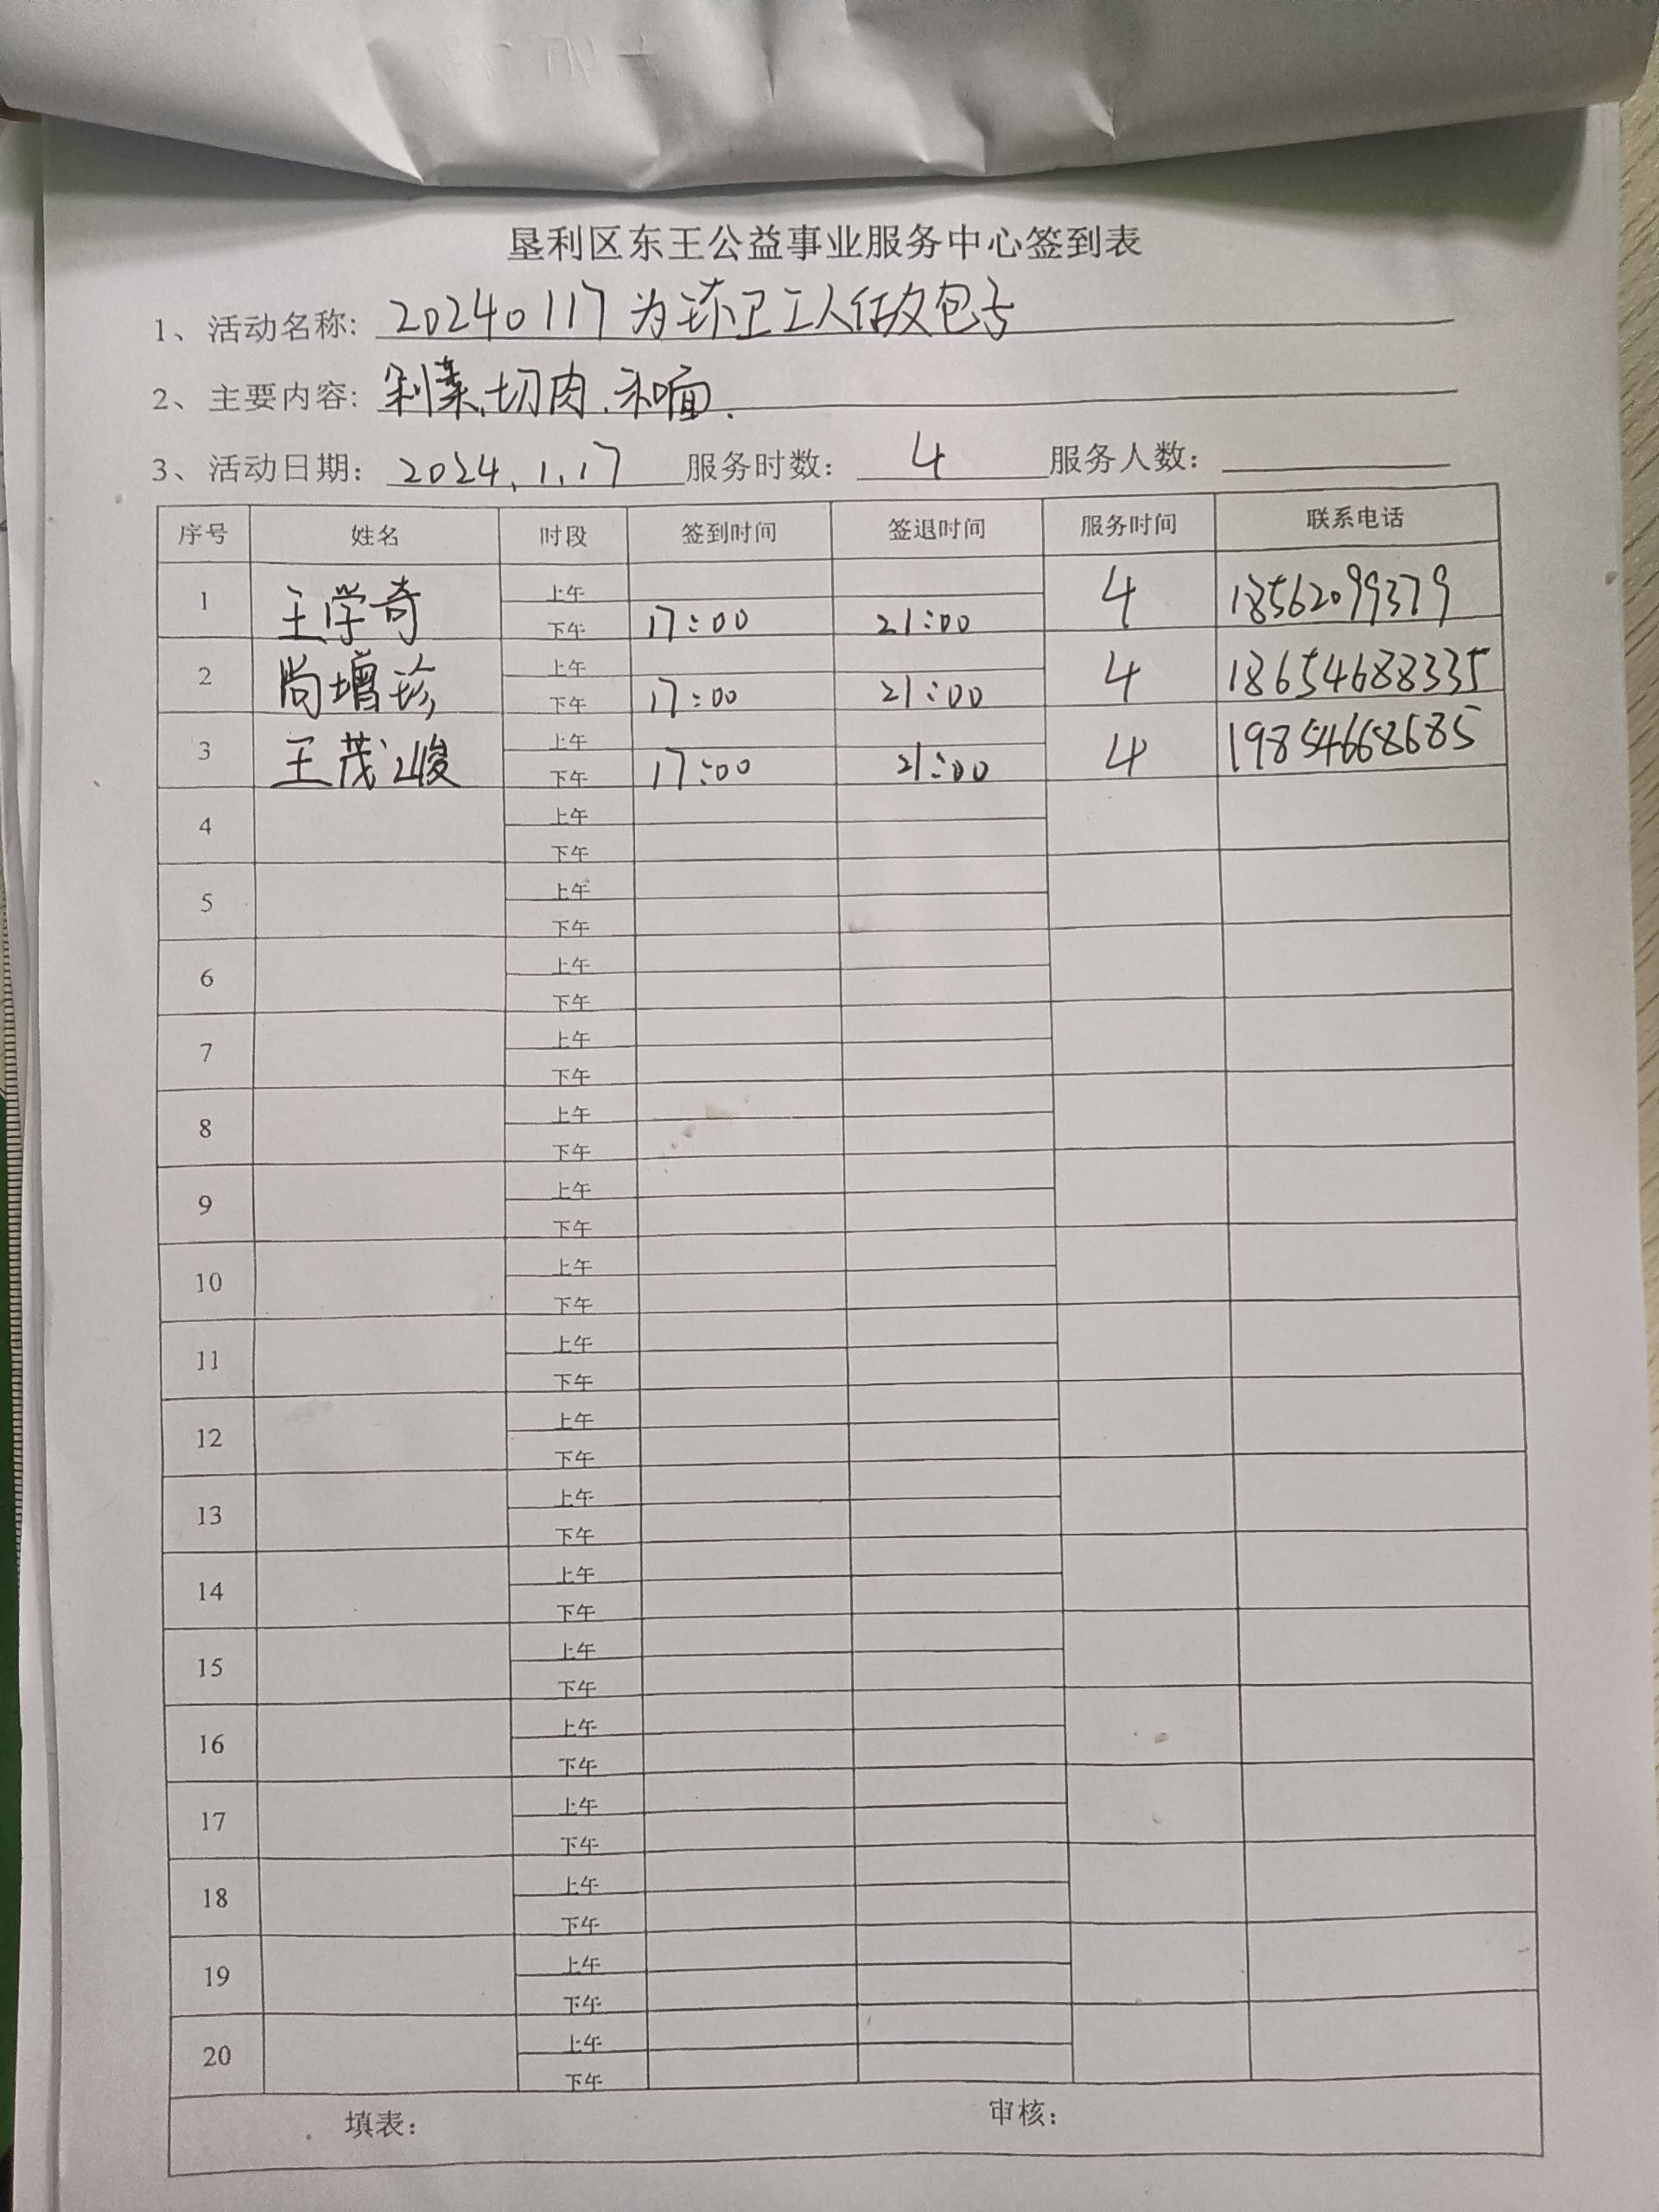 垦利区东王公益事业服务中心签到表
1、活动名称: 20240117为环卫工人做包子
2、主要内容: 剁菜、切肉、和面.
3、活动日期: 2024.1.17 服务时数: 4 服务人数:
序号 姓名 时段 签到时间 签退时间 服务时间 联系电话
1 王学奇 上午 4 18562099379
下午 17:00 21:00
2 尚增珍 上午 4 18654688335
下午 17:00 21:00
3 王茂峻 上午 4 19854668685
下午 17:00 21:00
4 上午
下午
5 上午
下午
6 上午
下午
7 上午
下午
8 上午
下午
9 上午
下午
10 上午
下午
11 上午
下午
12 上午
下午
13 上午
下午
14 上午
下午
15 上午
下午
16 上午
下午
17 上午
下午
18 上午
下午
19 上午
下午
20 上午
下午
填表: 审核: